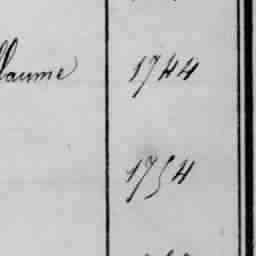 llaume 1744
1754